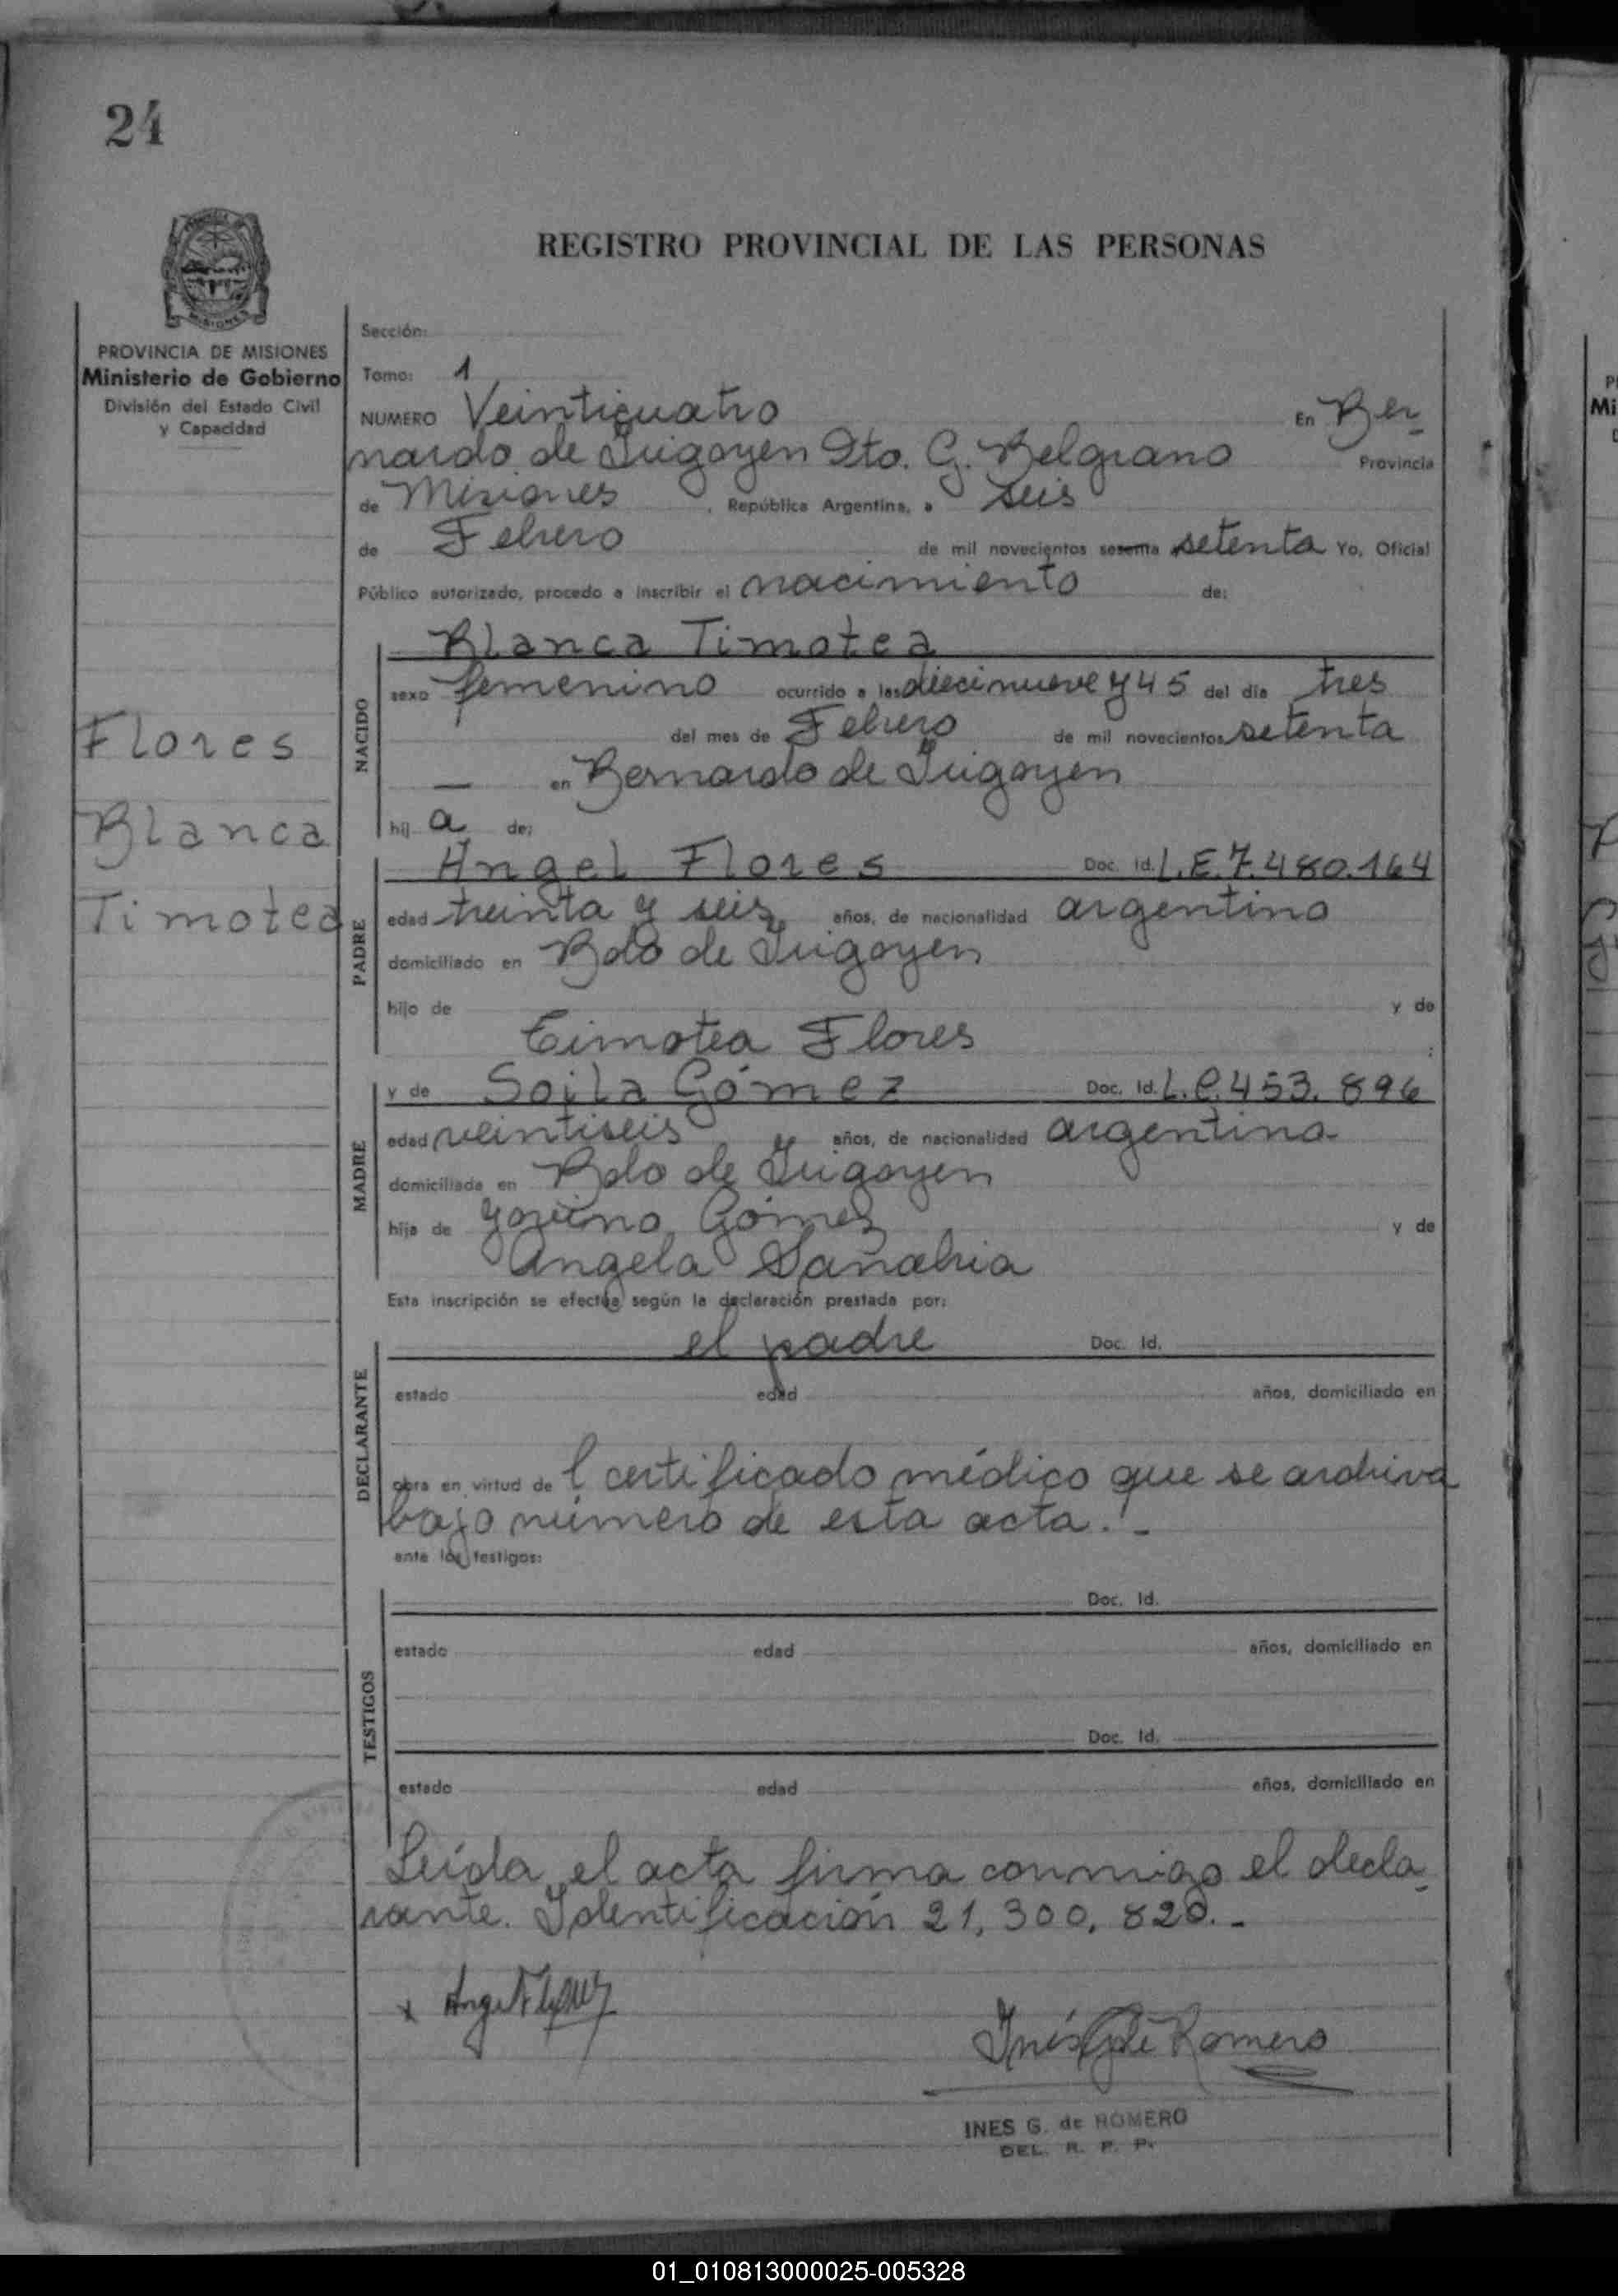 24
REGISTRO PROVINCIAL DE LAS PERSONAS
MISIONES
PROVINCIA DE MISIONES
Ministerio de Gobierno
División del Estado Civil
y Capacidad
Flores
Blanca
Timotea
Sección:
Tomo: 1
NUMERO Veinticuatro En Ber-
nardo de Irigoyen Dto. G. Belgrano Provincia
de Misiones, República Argentina, a seis
de Febrero de mil novecientos sesenta setenta Yo, Oficial
Público autorizado, procedo a inscribir el nacimiento de:
NACIDO
Blanca Timotea
sexo femenino ocurrido a las diecinueve y 45 del día tres
del mes de Febrero de mil novecientos setenta
— en Bernardo de Irigoyen
hij a de:
PADRE
Angel Flores Doc. Id. L.E. 7.480.164
edad treinta y seis años, de nacionalidad argentino
domiciliado en Bdo de Irigoyen
hijo de y de
Timotea Flores ;
MADRE
y de Soila Gómez Doc. Id. L.C. 453.896
edad veintiseis años, de nacionalidad argentina
domiciliada en Bdo de Irigoyen
hija de Gómez y de
Angela Sanabria
Esta inscripción se efectúa según la declaración prestada por:
DECLARANTE
el padre Doc. Id.
estado edad años, domiciliado en
obra en virtud de l certificado médico que se archiva
bajo número de esta acta.-
ante los testigos:
TESTIGOS
Doc. Id.
estado edad años, domiciliado en
Doc. Id.
estado edad años, domiciliado en
Leída el acta firma conmigo el decla-
rante. Identificación 21.300.820.-
x Angel Flores
Inés G de Romero
INES G. de ROMERO
DEL. R. P. P.
PI
Mi
01_010813000025-005328